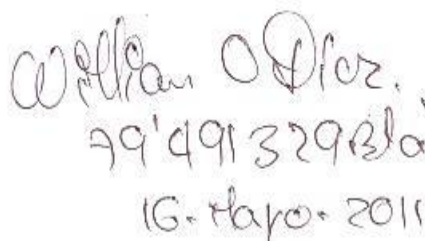 William O Diaz.
79'491329 Bta
16-Mayo-2011